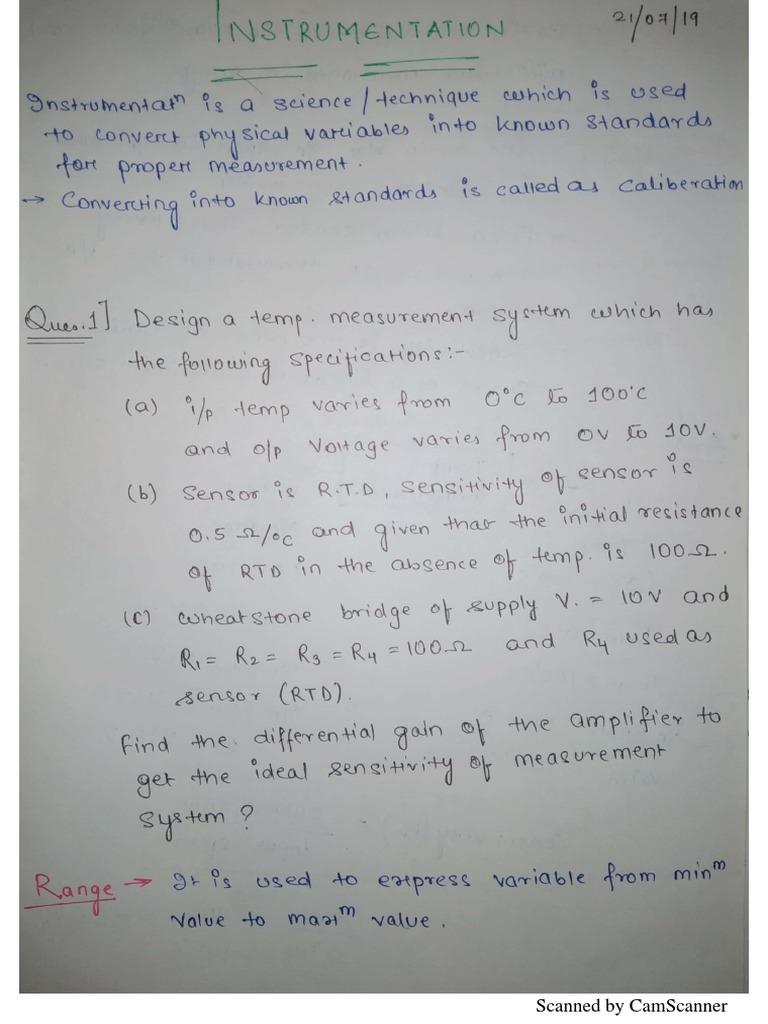 INSTRUMENTATION
21/07/19
Instrumentatn is a science/technique which is used
to convert physical variables into known standards
for proper measurement.
→ Converting into known standards is called as caliberation
Ques.1] Design a temp. measurement system which has
the following specifications:-
(a) i/p temp varies from 0°C to 100°C
and o/p voltage varies from 0V to 10V.
(b) Sensor is R.T.D, sensitivity of sensor is
0.5 Ω/°C and given that the initial resistance
of RTD in the absence of temp. is 100Ω.
(c) wheatstone bridge of supply V. = 10V and
R1 = R2 = R3 = R4 = 100Ω and R4 used as
sensor (RTD).
Find the differential gain of the amplifier to
get the ideal sensitivity of measurement
system?
Range → It is used to express variable from minm
value to maxm value.
Scanned by CamScanner